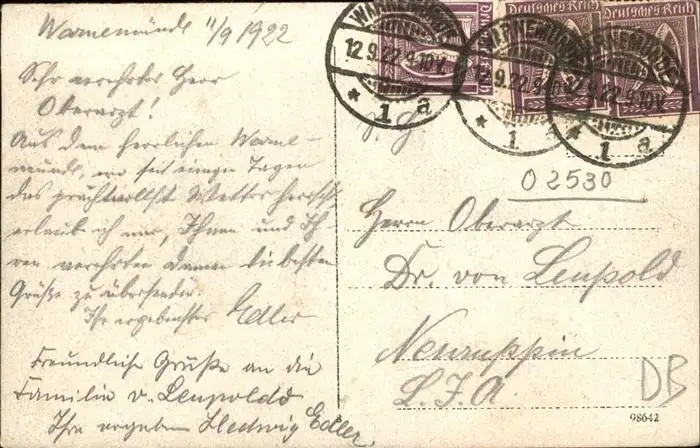 Warnemünde 11/9 1922
Sehr verehrter Herr
Oberarzt!
Aus dem herrlichen Warne-
münde, wo seit einigen Tagen
das prachtvollste Wetter herrscht
erlaub ich mir, Ihnen und Ih-
ren verehrten Damen die besten
Grüße zu übersenden.
Ihr ergebenster Edler
Freundliche Grüße an die
Familie v. Leupoldd
Ihre ergeben Hedwig Edler.
WARNEMÜNDE
12.9.22.9-10V.
* 1 a
Deutsches Reich
WARNEMÜNDE
12.9.22.9-10V.
* 1 a
Deutsches Reich
WARNEMÜNDE
12.9.22.9-10V.
* 1 a
Deutsches Reich
02530
Herrn Oberarzt
Dr. von Leupold
Neuruppin
L.F.A.
DB
98642